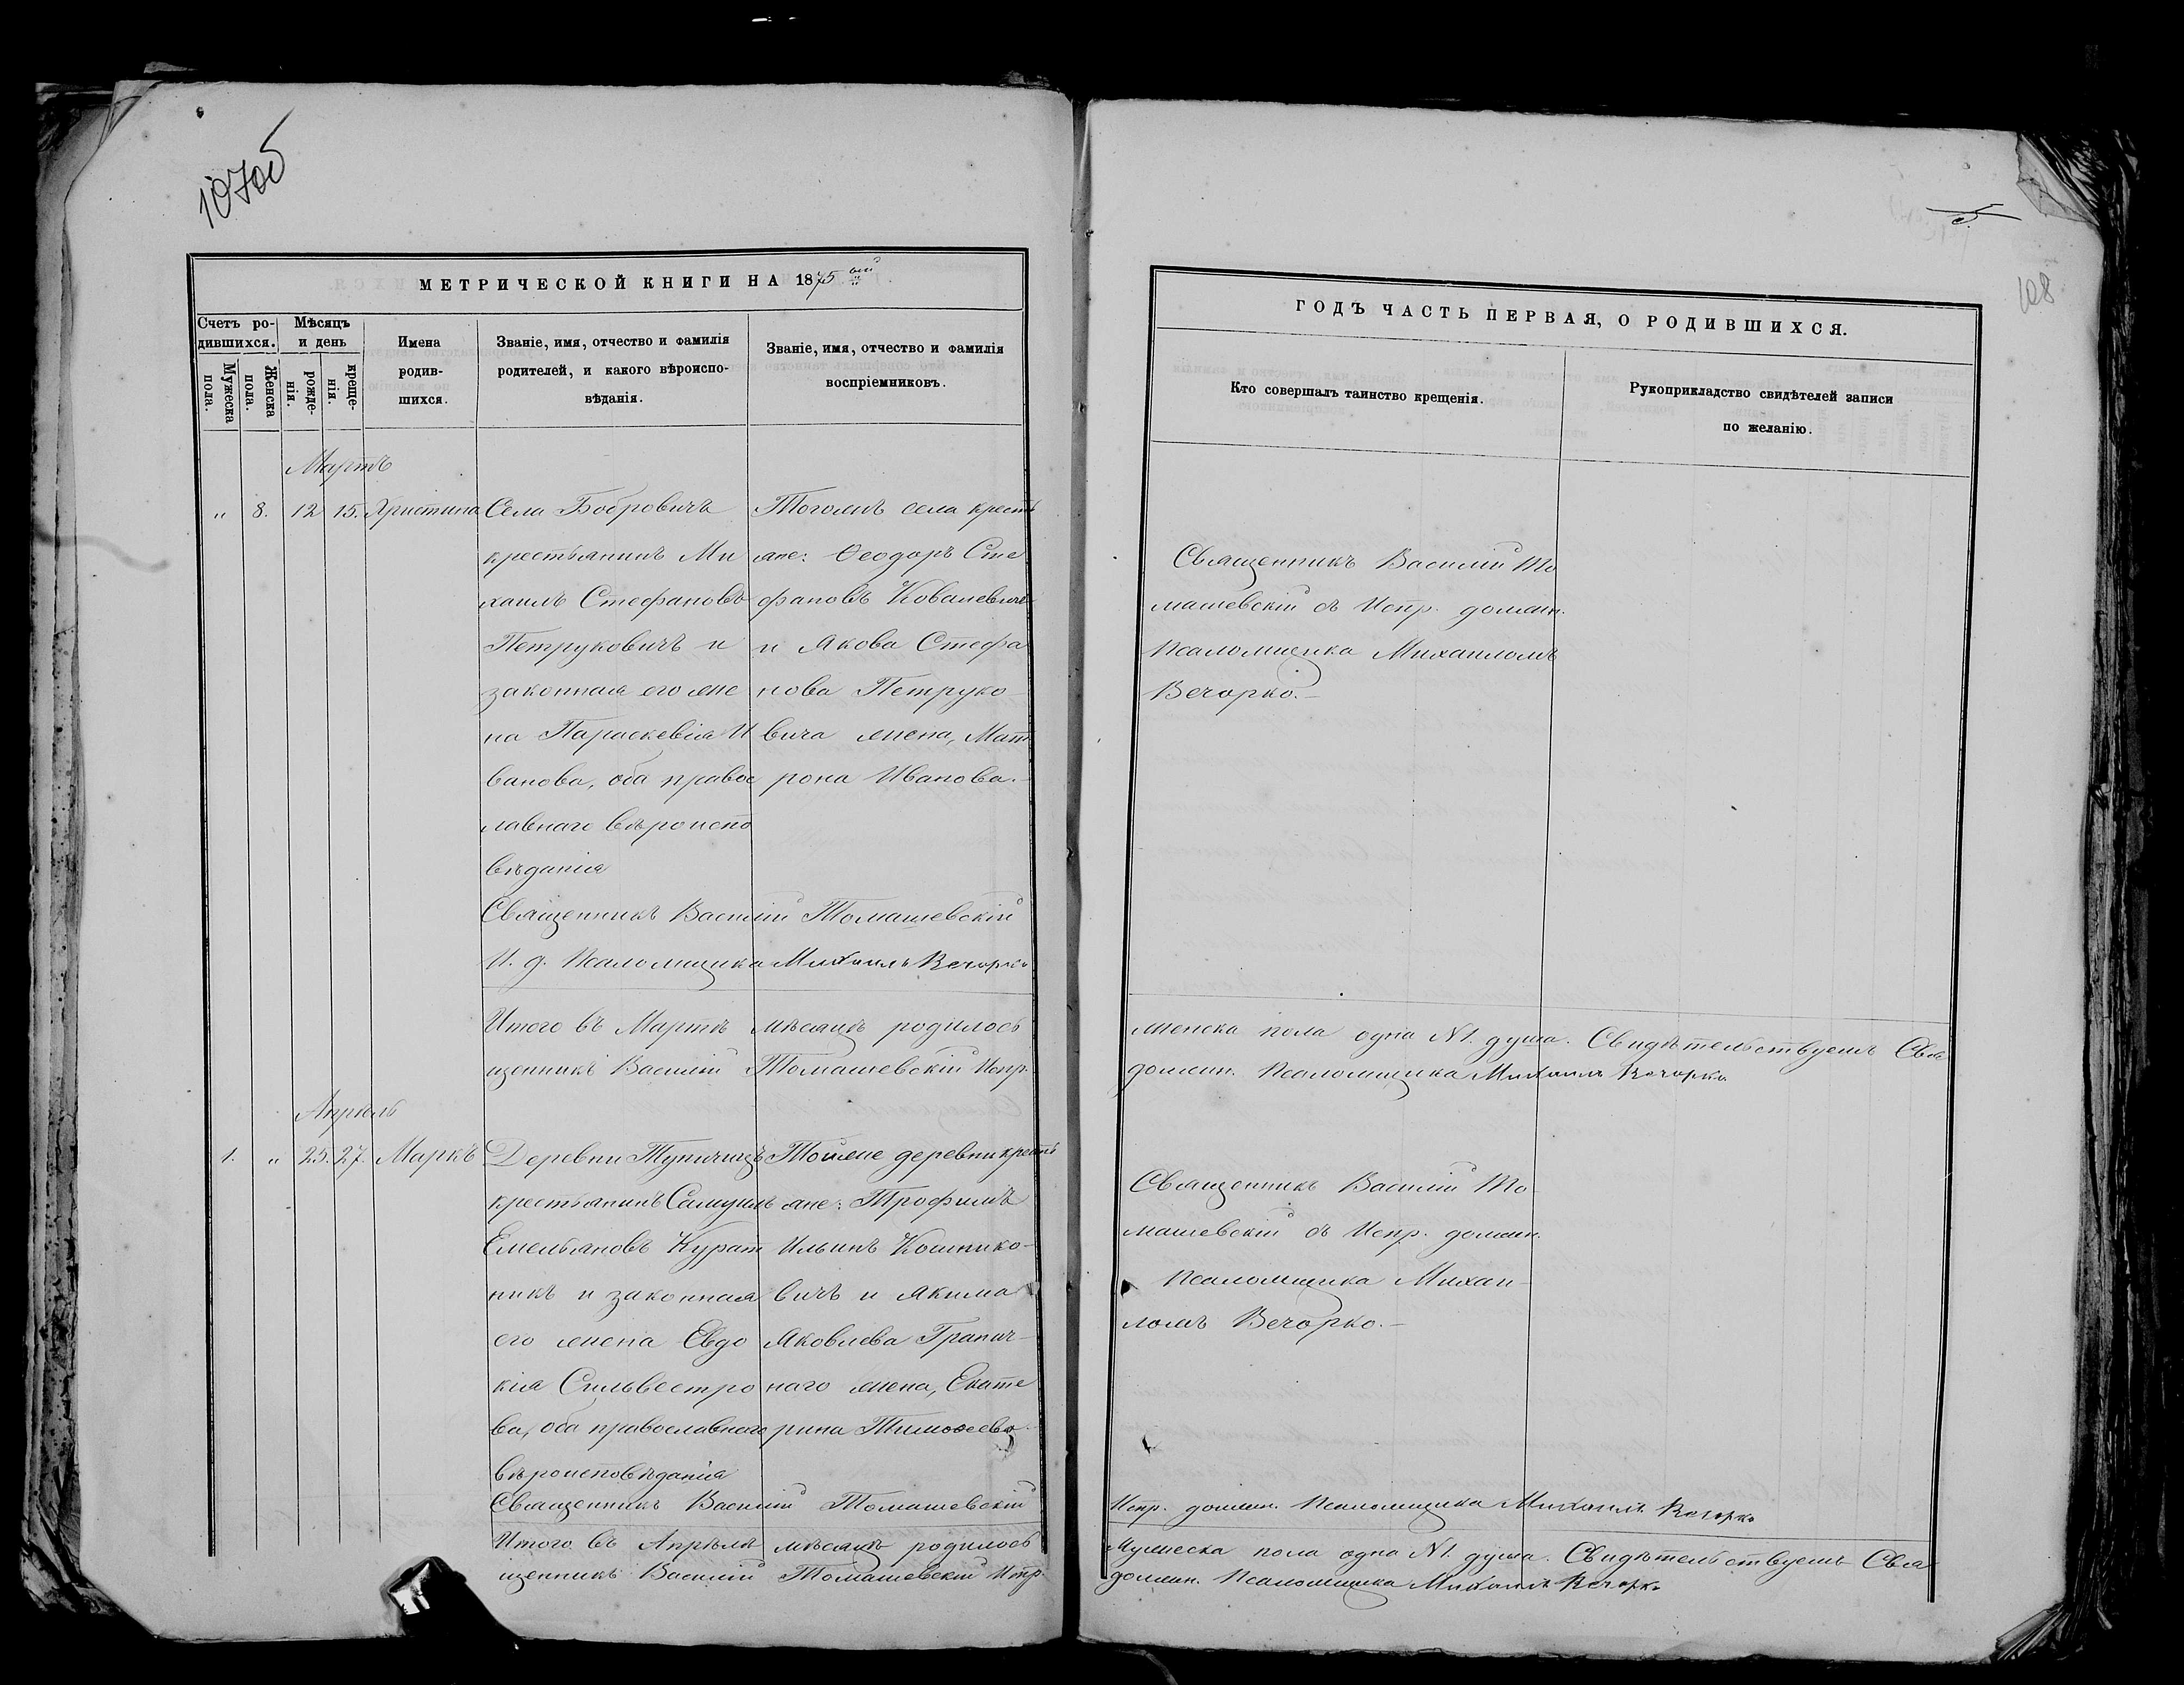 107об
МЕТРИЧЕСКОЙ КНИГИ НА 1875 ый
Счетъ ро-
дившихся.
Мужеска
пола.
Женска
пола.
Мѣсяцъ
и день
рожде-
нія.
креще-
нія.
Имена
родив-
шихся.
Званіе, имя, отчество и фамилія
родителей, и какого вѣроиспо-
вѣданія.
Званіе, имя, отчество и фамилія
воспріемниковъ.
Мартъ
„ 8. 12 15. Христина
Села Бобровичъ
крестьянинъ Ми
хаилъ Стефановъ
Петруковичъ и
законная его же
на Параскевія И
ванова, оба правос
лавнаго вѣроиспо
вѣданія
Тогожъ села кресть
яне: Ѳеодоръ Сте
фановъ Ковалевичъ
и Якова Стефа
нова Петруко
вича жена, Мат
рона Иванова.
Священникъ Василій Томашевскій
И. д. Псаломщика Михаилъ Вечорко
Итого въ Мартѣ мѣсяцѣ родилось
щенникъ Василій Томашевскій Испр.
Апрѣль
1. „ 25. 27. Маркъ
Деревни Тупичицъ
крестьянинъ Самуилъ
Емельяновъ Курат
никъ и законная
его жена Евдо
кія Сильвестро
ва, оба православнаго
вѣроисповѣданія
Тойже деревни кресть
яне: Трофимъ
Ильинъ Кошико-
вичъ и Якима
Яковлева Гранич-
наго жена, Екате
рина Тимоѳеева.
Священникъ Василій Томашевскій
Итого въ Апрѣлѣ мѣсяцѣ родилось
щенникъ Василій Томашевскій Испр.
108
ГОДЪ ЧАСТЬ ПЕРВАЯ, О РОДИВШИХСЯ.
Кто совершалъ таинство крещенія.
Рукоприкладство свидѣтелей записи
по желанію.
Священникъ Василій То
машевскій съ Испр. должн.
Псаломщика Михаиломъ
Вечорко.–
женска пола одна №1. душа. Свидѣтельствуемъ Свя
должн. Псаломщика Михаилъ Вечорко
Священникъ Василій То-
машевскій съ Испр. должн.
Псаломщика Михаи-
ломъ Вечорко.–
Испр. должн. Псаломщика Михаилъ Вечорко
Мужеска пола одна №1. душа. Свидѣтельствуемъ Свя
должн. Псаломщика Михаилъ Вечорко